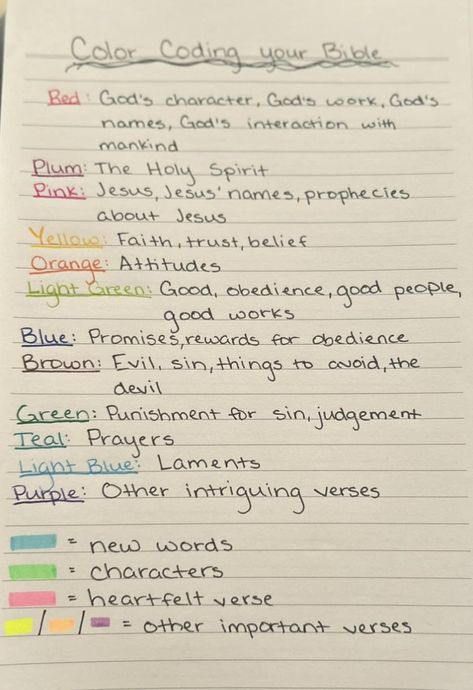 Color Coding your Bible
Red: God's character, God's work, God's
names, God's interaction with
mankind
Plum: The Holy Spirit
Pink: Jesus, Jesus' names, prophecies
about Jesus
Yellow: Faith, trust, belief
Orange: Attitudes
Light Green: Good, obedience, good people,
good works
Blue: Promises, rewards for obedience
Brown: Evil, sin, things to avoid, the
devil
Green: Punishment for sin, judgement
Teal: Prayers
Light Blue: Laments
Purple: Other intriguing verses
= new words
= characters
= heartfelt verse
/ / = other important verses